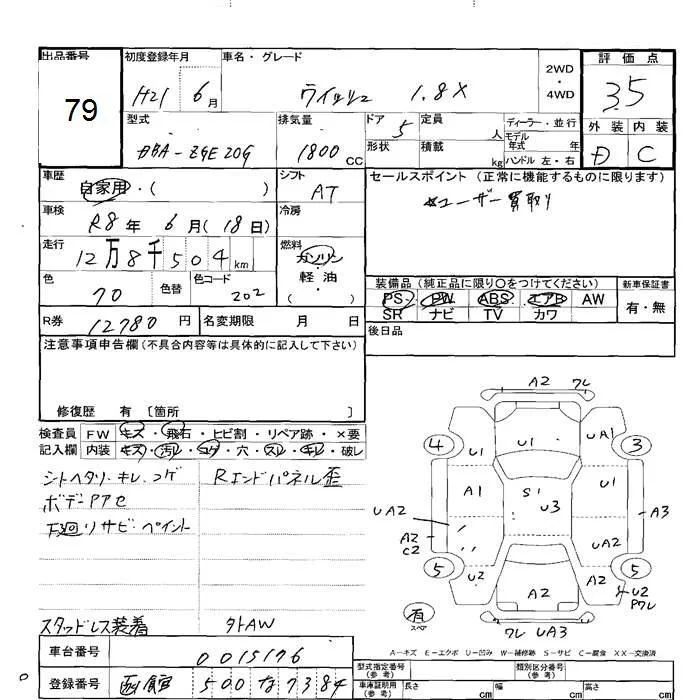 出品番号 初度登録年月 車名・グレード 2WD・4WD 評価点
79 H21 6月 ウィッシュ 1.8X 3.5
型式 排気量 ドア 定員 ディーラー・並行 外装 内装
DBA-ZGE20G 1800CC 5 人 モデル年式 年 D C
形状 積載 kg ハンドル 左・右
車歴 シフト セールスポイント(正常に機能するものに限ります)
自家用・( ) AT ユーザー買取り
車検 冷房
R8年 6月(18日)
走行 燃料
12万8千504km ガソリン
軽・油
( )
色 色替 色コード
70 202
装備品(純正品に限り○をつけてください) 新車保証書
PS PW ABS エアB AW 有・無
SR ナビ TV カワ
R券 12780円 名変期限 月 日
後日品
注意事項申告欄(不具合内容等は具体的に記入して下さい)
修復歴 有〔箇所 〕
検査員 FW キズ・飛石・ヒビ割・リペア跡・×要
記入欄 内装 キズ・汚レ・コゲ・穴・スレ・キレ・破レ
シートヘタリ・キレ・コゲ Rエンドパネル歪
ボデーPアセ
下廻りサビ・ペイント
スタッドレス装着 外AW
A2 ワレ
4 U1 UA1 3
U1
A1 S1 U3 U1
UA2 A3
A2
C2 UA2
5 U2 A2 A2 5
U2
Pワレ
有
スペア
ワレ UA3
A-キズ E-エクボ U-凹み W-補修跡 S-サビ C-腐食 XX-交換済
車台番号 0015176
登録番号 函館 500 な 7384
型式指定番号(参考) 類別区分番号(参考)
車庫証明用(参考) 長さ cm 幅 cm 高さ cm